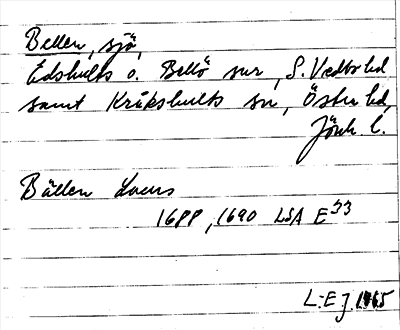 Bellen, sjö,
Edshults o. Bellö snr, S. Vedbo hd
samt Kråkshults sn, Östra hd,
Jönk l.
Bällen Lacus
1688, 1690 LSA E33
L:E.J. 1965